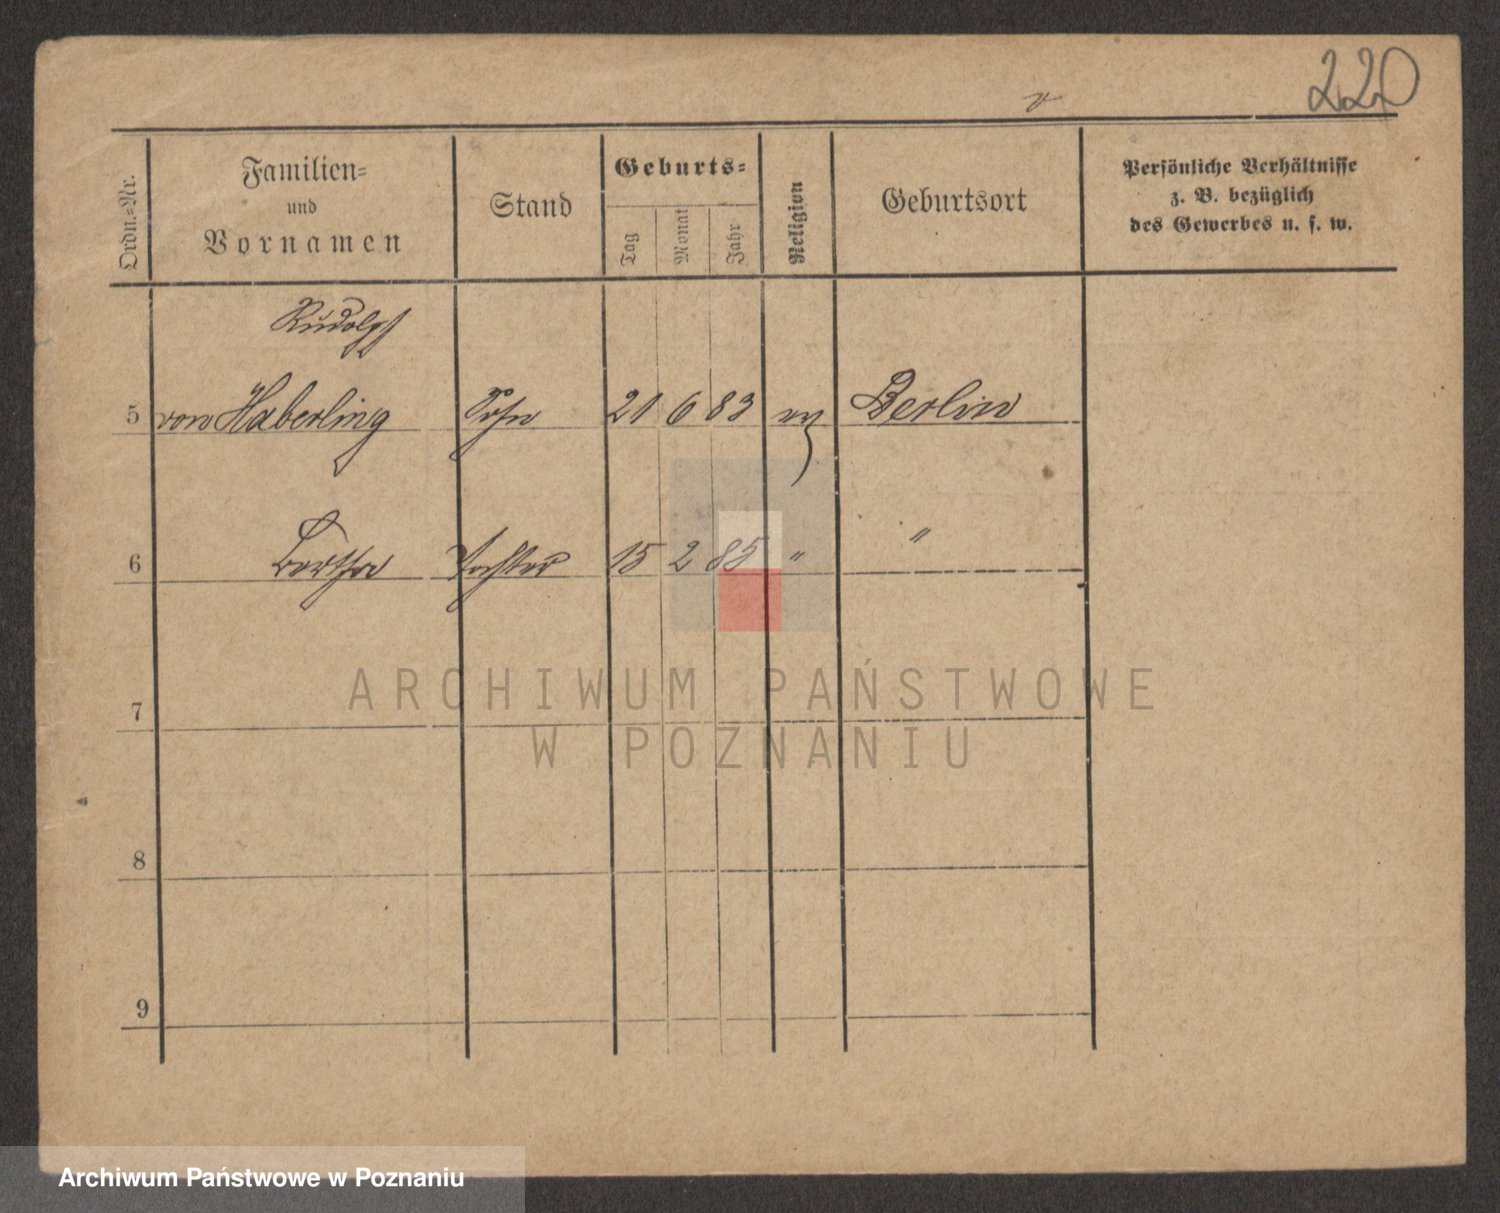 220
Ordn.=Nr.
Familien=
und
Vornamen
Stand
Geburts=
Tag
Monat
Jahr
Religion
Geburtsort
Persönliche Verhältnisse
z. B. bezüglich
des Gewerbes u. s. w.
Rudolph
5 von Haberling Sohn 21 6 83 Berlin
6 Bertha Tochter 15 2 85 " "
7
8
9
ARCHIWUM PAŃSTWOWE
W POZNANIU
Archiwum Państwowe w Poznaniu